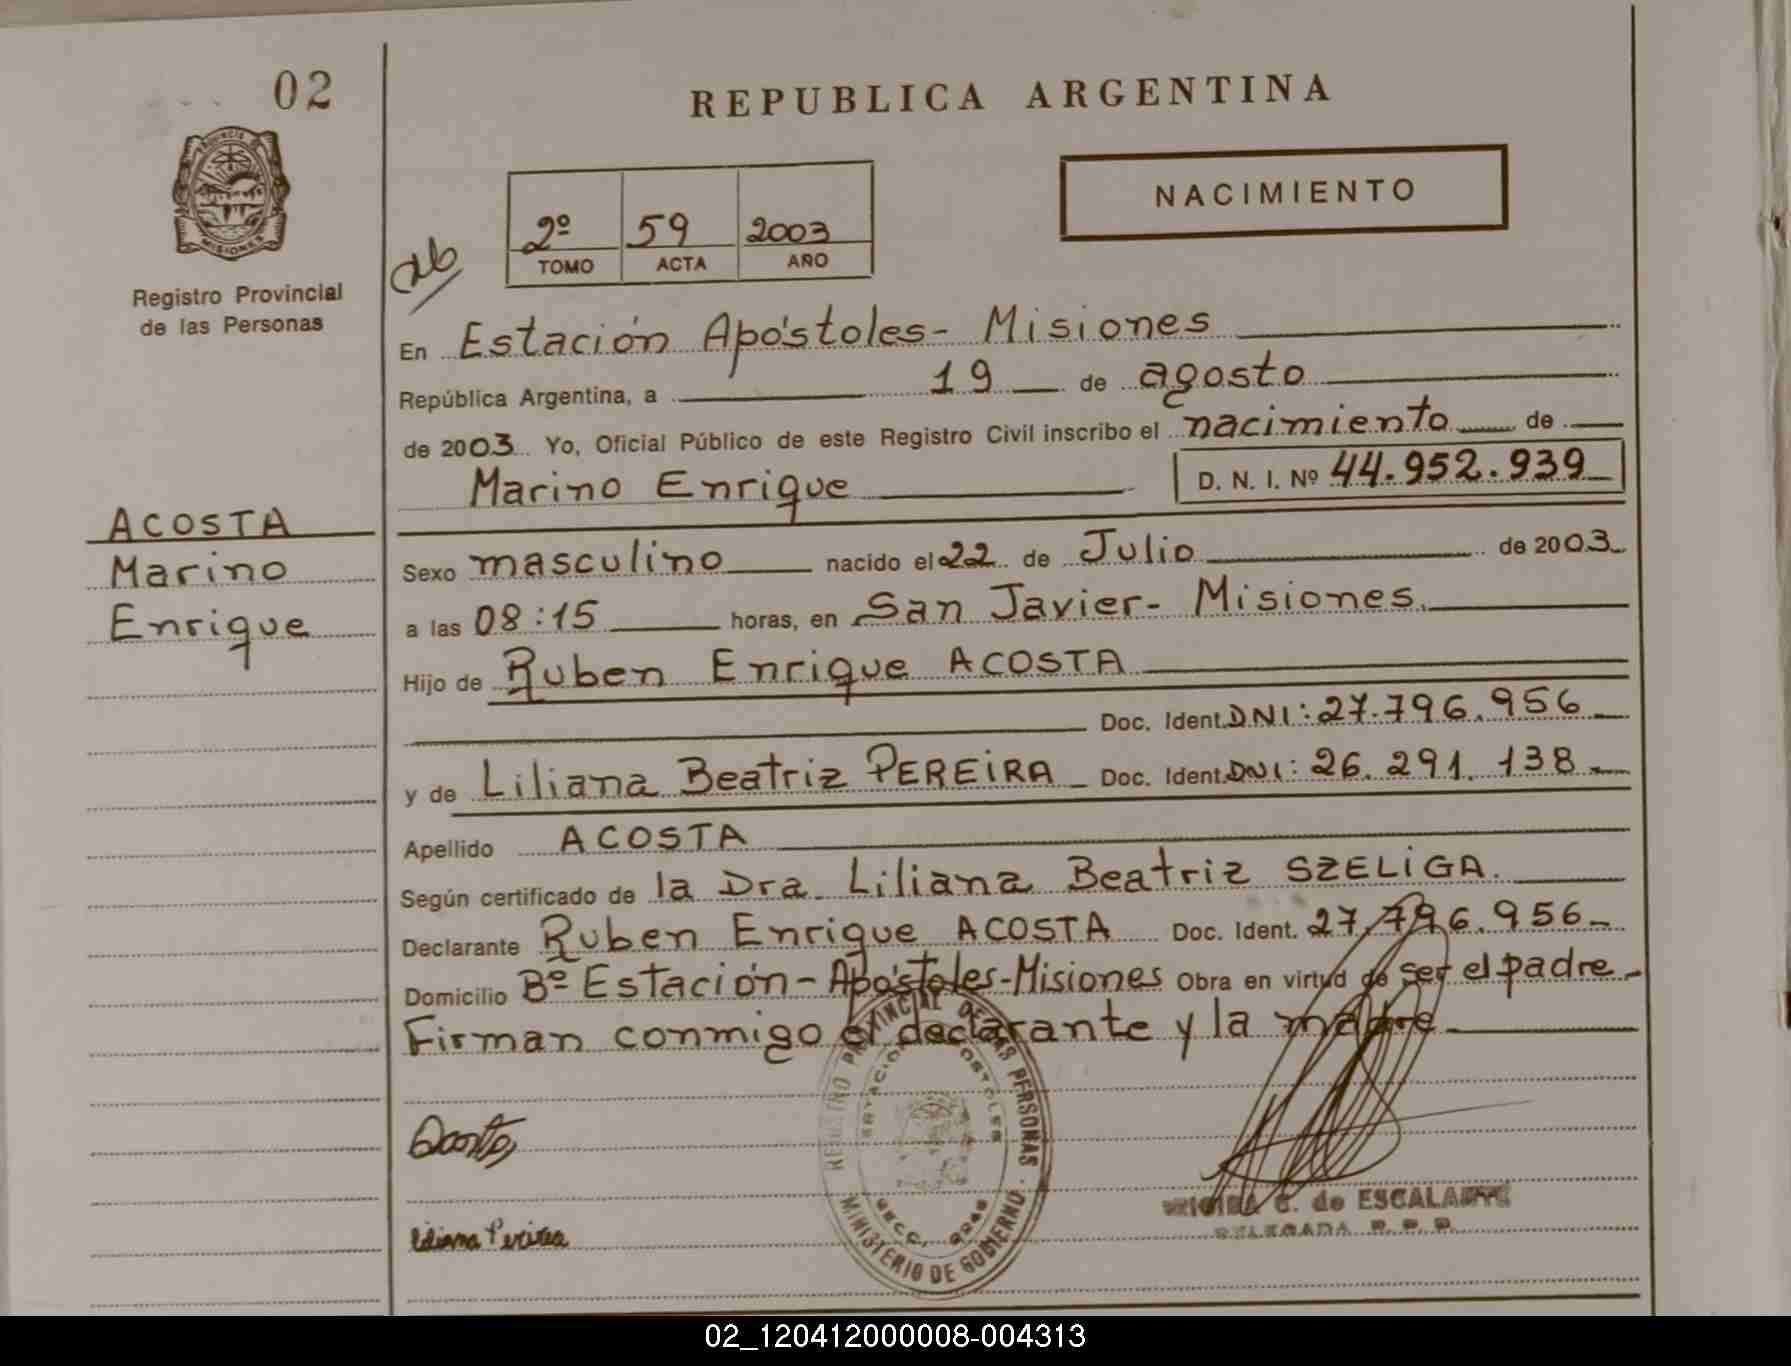 02
REPUBLICA ARGENTINA
PROVINCIA DE
MISIONES
Registro Provincial
de las Personas
NACIMIENTO
2º 59 2003
TOMO ACTA AÑO
En Estación Apóstoles- Misiones
República Argentina, a 19 de agosto
de 2003 Yo, Oficial Público de este Registro Civil inscribo el nacimiento de
Marino Enrique D. N. I. Nº 44.952.939
ACOSTA
Marino
Enrique
Sexo masculino nacido el 22 de Julio de 2003
a las 08:15 horas, en San Javier- Misiones.
Hijo de Ruben Enrique ACOSTA
Doc. Ident. DNI: 27.796.956
y de Liliana Beatriz PEREIRA Doc. Ident. DNI: 26.291.138
Apellido ACOSTA
Según certificado de la Dra. Liliana Beatriz SZELIGA.
Declarante Ruben Enrique ACOSTA Doc. Ident. 27.796.956
Domicilio Bº Estación-Apóstoles-Misiones Obra en virtud de ser el padre
Firman conmigo el declarante y la madre
REGISTRO PROVINCIAL DE LAS PERSONAS
ESTACION APOSTOLES
MINISTERIO DE GOBIERNO
Acosta
Liliana Pereira
C. de ESCALANTE
DELEGADA R. P. P.
02_120412000008-004313